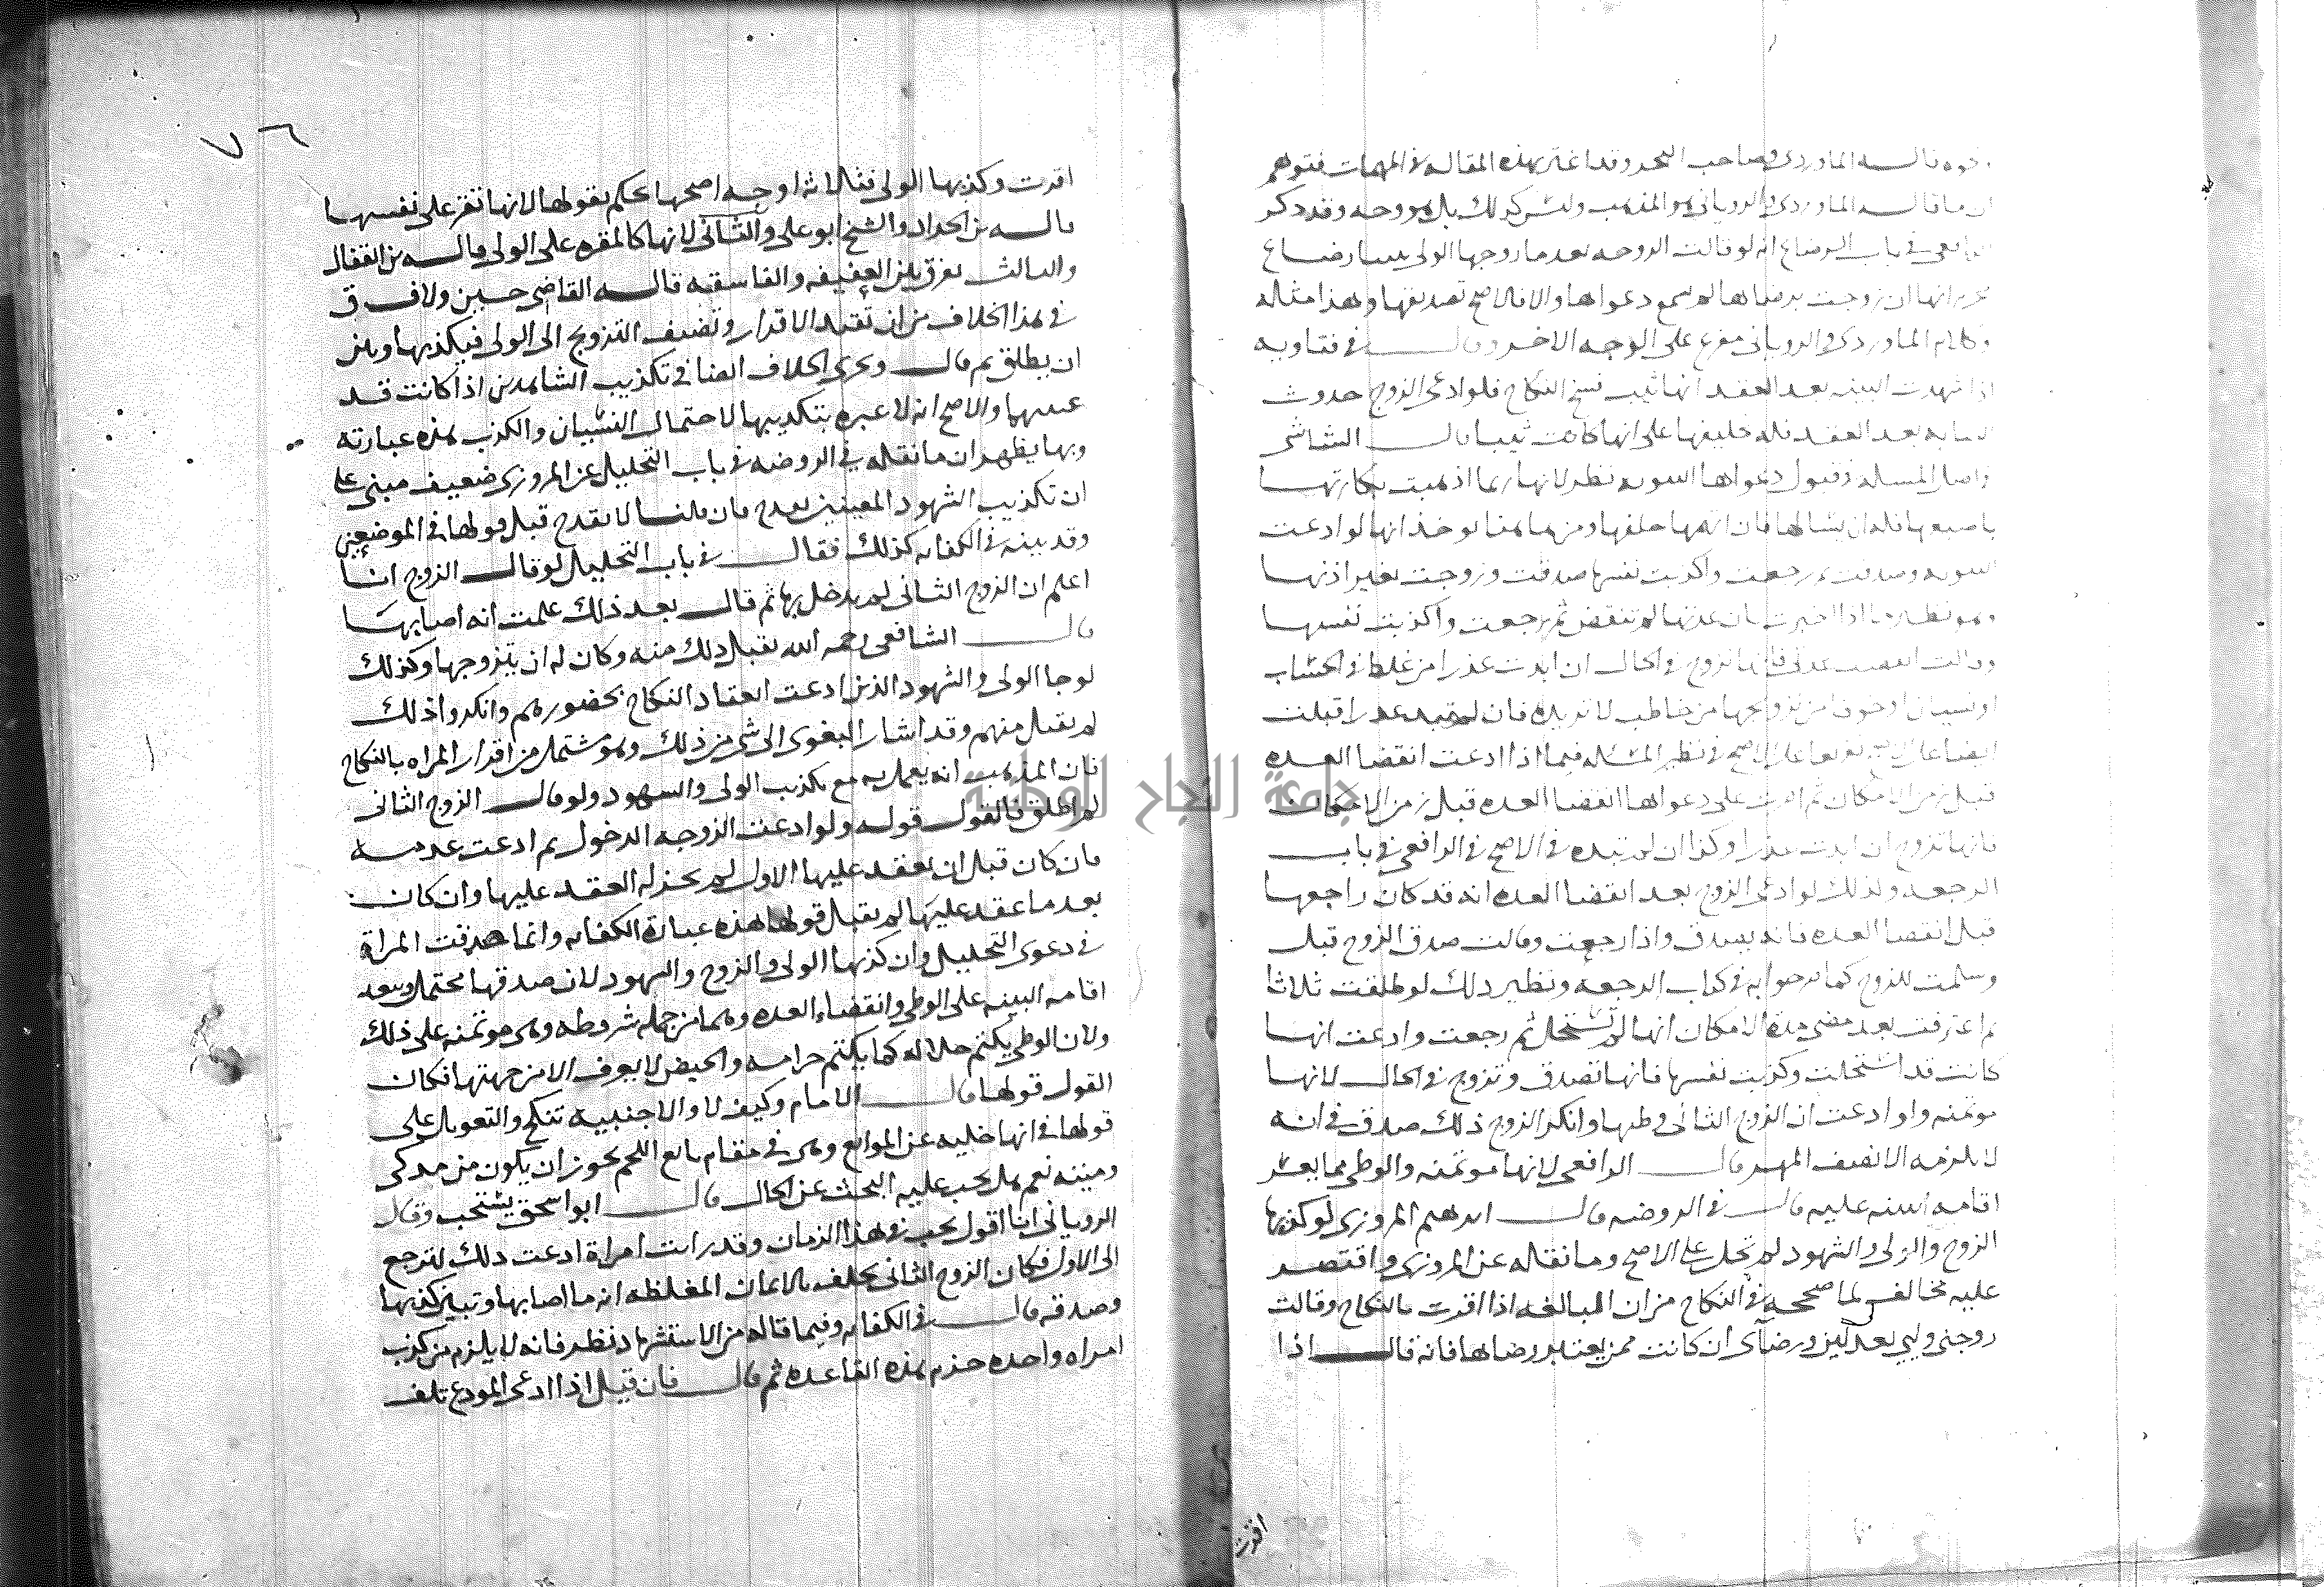 قاله الماوردي وصاحب البحر وقد اغتر بهذه المقاله في المهمات فتوهم
ان ما قاله الماوردي والروياني هو المذهب وليس كذلك بل هو وجه وقد ذكر
الرافعي في باب الرضاع انه لو قالت الزوجه بعد ما زوجها الولي بيننا رضاع
محرم انها ان زوجت برضاها لم تسمع دعواها والا فالاصح تصديقها وهذا مثله
وكلام الماوردي والروياني مفرع على الوجه الاخر وقال في فتاويه
اذا شهدت البينه بعد العقد انها ثيب فسخ النكاح فلو ادعى الزوج حدوث
بعد العقد فله حليفها على انها كانت ثيبا قال الشاشي
واصل المسله وقبول دعواها الثيوبه نظر لانها ربما اذهبت بكارتها
باصبعها فله ان يسالها فان اتهمها حلفها ومن هاهنا يوخذ انها لو ادعت
الثيوبه وصدقت ثم رجعت واكذبت نفسها صدقت وزوجت بغير اذنها
وهو نظير ما اذا اخبرت بان عدتها لم تنقض ثم رجعت واكذبت نفسها
وقالت انقضت عدتي فانها تزوج في الحال ان ابدت عذرا من غلط في احتساب
او نسيان او خوف من تزويجها من خاطب لا تريده فان لم تبد عذرا قبلت
ايضا على الاصح في نظير المسله فيما اذا ادعت انقضا العده
قبل زمن الامكان ثم اصرت على دعواها انقضا العده قبل زمن الامكان
فانها تزوج ان ابدت عذرا وكذا ان لم تبده في الاصح في الرافعي في باب
الرجعه ولذلك لو ادعى الزوج بعد انقضا العده انه قد كان راجعها
قبل انقضا العده فانه يصدق واذا رجعت وقالت صدق الزوج قبل
وسلمت للزوج كما صرحوا به في كتاب الرجعه ونظير ذلك لو طلقت ثلاثا
ثم اعترفت بعد مضي مدة الامكان انها لم تستحل ثم رجعت وادعت انها
كانت قد استحلت وكذبت نفسها فانها تصدق وتزوج في الحال لانها
موتمنه ولو ادعت ان الزوج الثاني وطيها وانكر الزوج ذلك صدق في انه
لا يلزمه الا نصف المهر قال الرافعي لانها موتمنه والوطي مما يعسر
اقامه البينه عليه قال في الروضه قال ابرهيم المروزي لو كذبها
الزوج والولي والشهود لم تحل على الاصح وما نقله عن المروزي واقتصر
عليه مخالف لما صححه في النكاح من ان البالغه اذا اقرت بالنكاح وقالت
زوجني وليي بعدلين ورضاي ان كانت ممن يعتبر رضاها فانه قال اذا
اقرت
٧٦
اقرت وكذبها الولي فثلاثه اوجه اصحها يحكم بقولها لانها تقر على نفسها
قاله بن الحداد والشيخ ابو علي والثاني لا لانها كالمقره على الولي قاله بن القفال
والثالث يفرق بين العفيفه والفاسقه قاله القاضي حسين ولا فرق
في هذا الخلاف من ان تقيد الاقرار وتضيف التزويج الى الولي فيكذبها وبين
ان يطلق ثم قال ويجري الخلاف ايضا في تكذيب الشاهدين اذا كانت قد
عينتهما والاصح انه لا عبره بتكذيبهما لاحتمال النسيان والكذب هذه عبارته
وبها يظهر ان ما نقله في الروضه في باب التحليل عن المروزي ضعيف مبني على
ان تكذيب الشهود المعينين يقدح فان قلنا لا يقدح قبل قولها في الموضعين
وقد بينه في الكفايه كذلك فقال في باب التحليل لو قال الزوج انا
اعلم ان الزوج الثاني لم يدخل بها ثم قال بعد ذلك علمت انه اصابها
قال الشافعي رحمه الله يقبل ذلك منه وكان له ان يتزوجها وكذلك
لو جا الولي والشهود الذين ادعت انعقاد النكاح بحضورهم وانكروا ذلك
لم يقبل منهم وقد اشار البغوي الى شي من ذلك وهو مشتمل من اقرار المراه بالنكاح
فان المذهب انه يعمل به مع تكذيب الولي والشهود ولو قال الزوج الثاني
لم اطلق فالقول قوله ولو ادعت الزوجه الدخول ثم ادعت عدمه
فان كان قبل ان يعقد عليها الاول لم يجز له العقد عليها وان كان
بعد ما عقد عليها لم يقبل قولها هذه عبارة الكفايه وانما صدقت المراة
في دعوى التحليل وان كذبها الولي والزوج والشهود لان صدقها محتمل وبعد
اقامه البينه على الوطي وانقضاء العده وهما من جمله شروطه وهي موتمنه على ذلك
ولان الوطي يكتم حلاله كما يكتم حرامه والحيض لا يعرف الا من جهتها فكان
القول قولها قال الامام وكيف لا والاجنبيه تنكح والتعويل على
قولها في انها خليه عن الموانع وهي في مقام بايع اللحم يجوز ان يكون من مذكى
وميته نعم هل يجب عليه البحث عن الحال قال ابو اسحق يستحب وقال
الروياني انا اقول يجب في هذا الزمان وقد رايت امراة ادعت ذلك لترجع
الى الاول فكان الزوج الثاني يحلف بالايمان المغلظه انه ما اصابها وتبين كذبها
وصدقه قال في الكفايه وفيما قاله من الاستشهاد نظر فانه لا يلزم من كذب
امراه واحده خرم هذه القاعده ثم قال فان قيل اذا ادعى المودع تلف
جامعة النجاح الوطنية